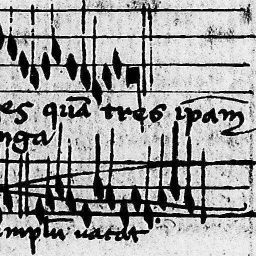 es quā tres ipam
nga
mplū vacat